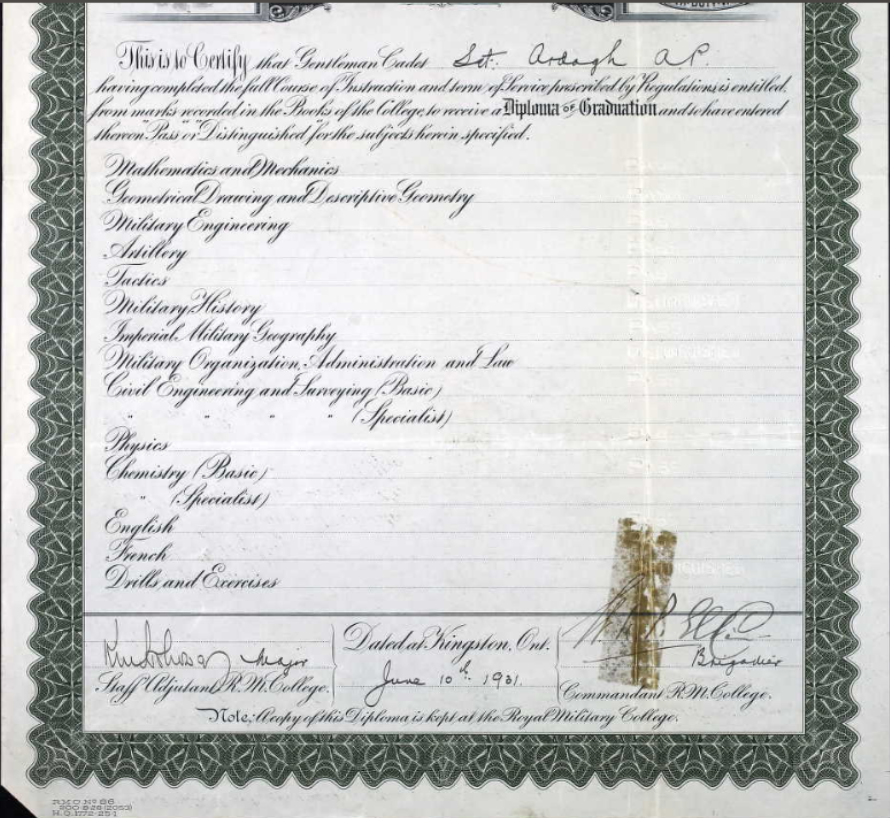 This is to Certify that Gentleman Cadet Sgt. Ardagh A.P.
having completed the full Course of Instruction and term of Service prescribed by Regulations is entitled,
from marks recorded in the Books of the College, to receive a Diploma OF Graduation and to have entered
thereon "Pass" or "Distinguished" for the subjects herein specified.
Mathematics and Mechanics
Geometrical Drawing and Descriptive Geometry
Military Engineering
Artillery
Tactics
Military History
Imperial Military Geography
Military Organization, Administration and Law
Civil Engineering and Surveying (Basic)
" " " " (Specialist)
Physics
Chemistry (Basic)
" (Specialist)
English
French
Drills and Exercises
Major
Staff Adjutant R.M. College.
Dated at Kingston, Ont.
June 10th 1931.
Brigadier
Commandant R.M. College.
Note: A copy of this Diploma is kept at the Royal Military College.
R M C Nº 86
200-8-28 (2053)
H.Q. 1772-25-1